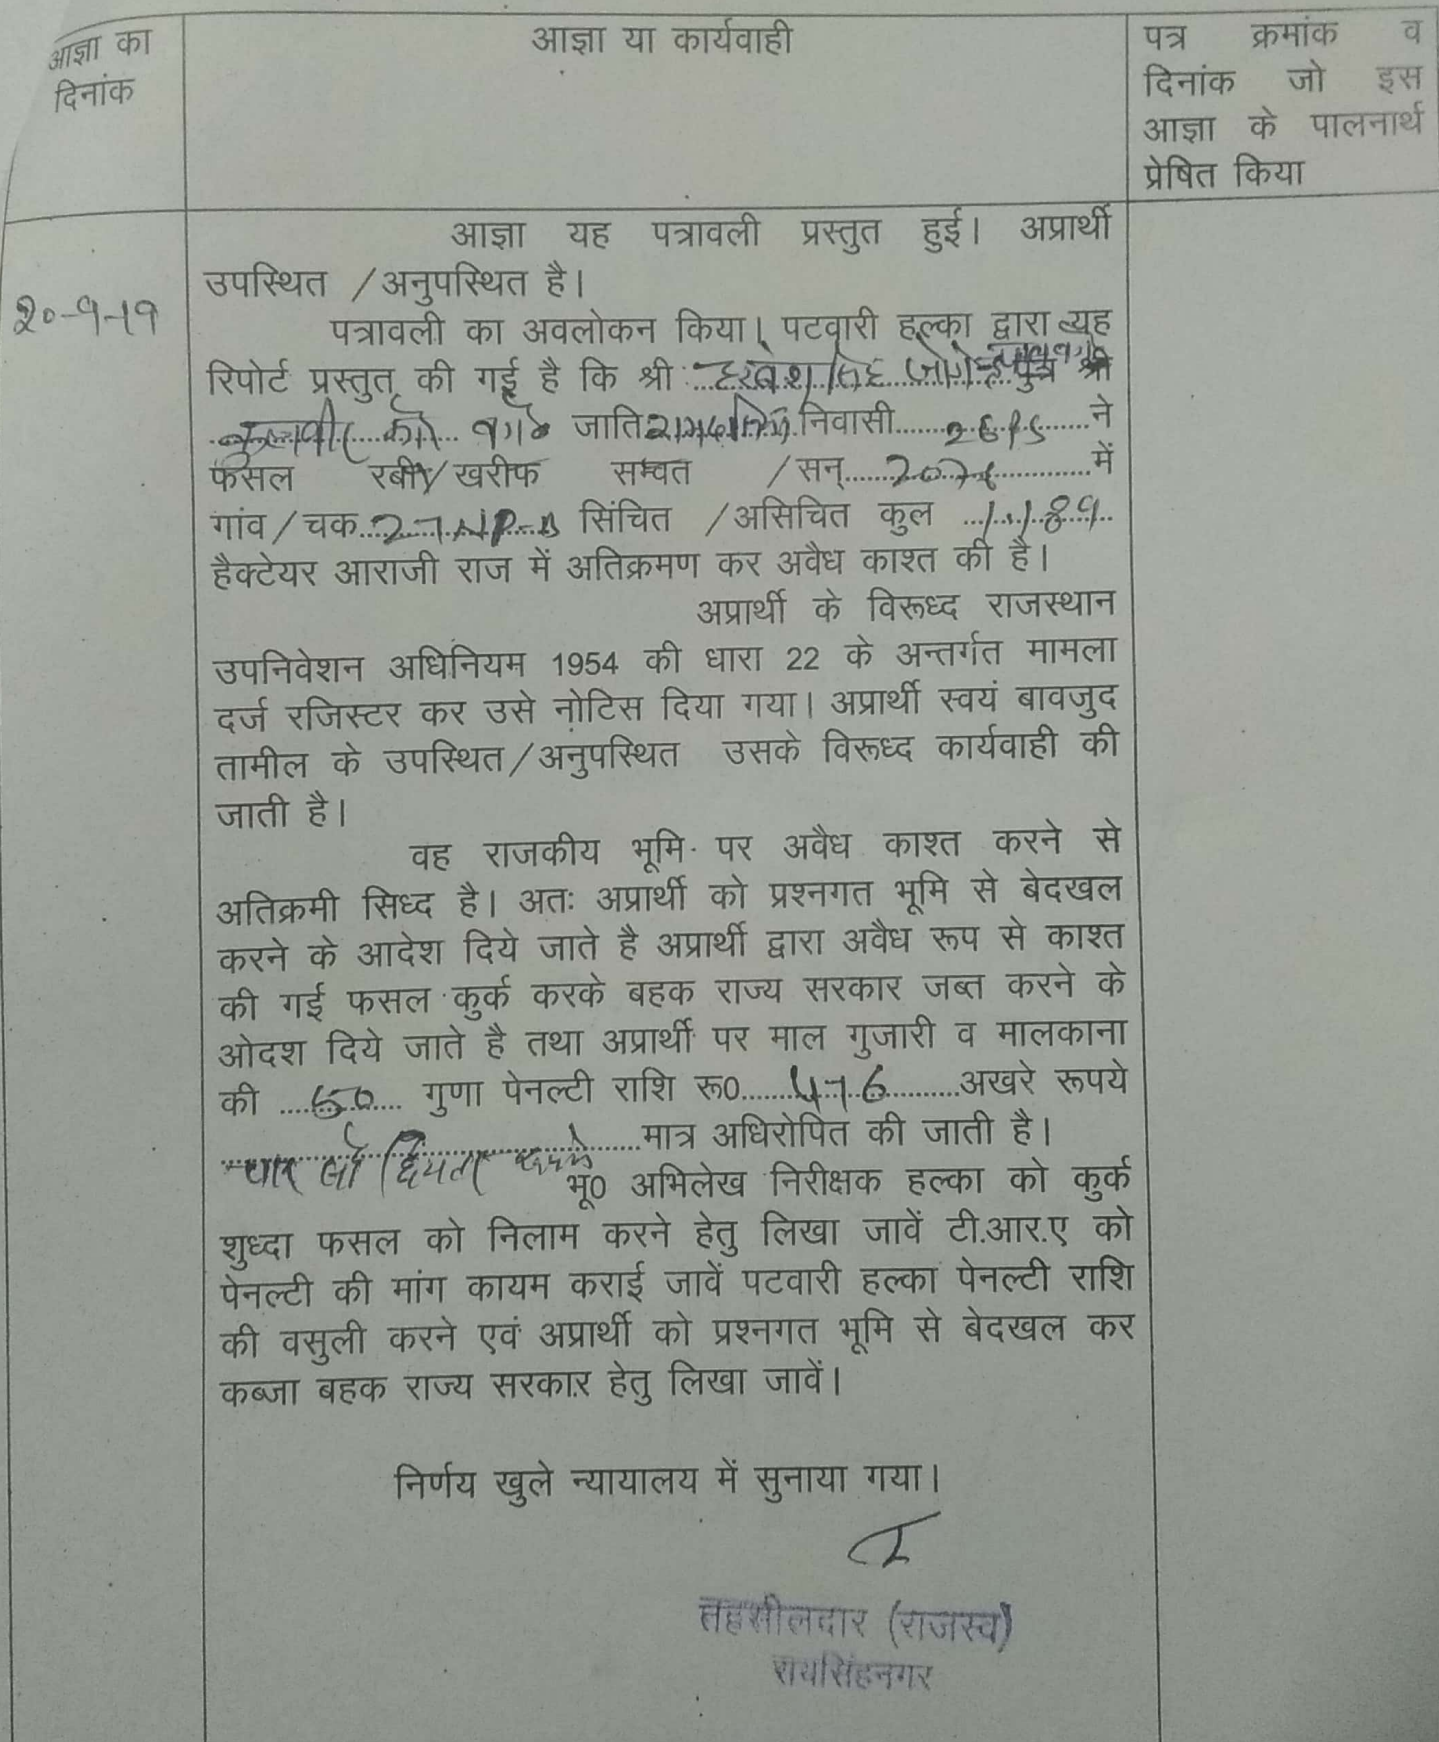 आज्ञा का
दिनांक
आज्ञा या कार्यवाही
पत्र क्रमांक व
दिनांक जो इस
आज्ञा के पालनार्थ
प्रेषित किया
आज्ञा यह पत्रावली प्रस्तुत हुई। अप्रार्थी
उपस्थित /अनुपस्थित है।
२०-९-१९
पत्रावली का अवलोकन किया। पटवारी हल्का द्वारा यह
रिपोर्ट प्रस्तुत की गई है कि श्री पुत्र श्री
जाति निवासी ने
फसल रबी/खरीफ सम्वत /सन् में
गांव/चक सिंचित /असिचित कुल
हैक्टेयर आराजी राज में अतिक्रमण कर अवैध काश्त की है।
अप्रार्थी के विरूध्द राजस्थान
उपनिवेशन अधिनियम 1954 की धारा 22 के अन्तर्गत मामला
दर्ज रजिस्टर कर उसे नोटिस दिया गया। अप्रार्थी स्वयं बावजुद
तामील के उपस्थित/अनुपस्थित उसके विरूध्द कार्यवाही की
जाती है।
वह राजकीय भूमि पर अवैध काश्त करने से
अतिक्रमी सिध्द है। अतः अप्रार्थी को प्रश्नगत भूमि से बेदखल
करने के आदेश दिये जाते है अप्रार्थी द्वारा अवैध रूप से काश्त
की गई फसल कुर्क करके बहक राज्य सरकार जब्त करने के
ओदश दिये जाते है तथा अप्रार्थी पर माल गुजारी व मालकाना
की 50 गुणा पेनल्टी राशि रू0 अखरे रूपये
मात्र अधिरोपित की जाती है।
भू0 अभिलेख निरीक्षक हल्का को कुर्क
शुध्दा फसल को निलाम करने हेतु लिखा जावें टी.आर.ए को
पेनल्टी की मांग कायम कराई जावें पटवारी हल्का पेनल्टी राशि
की वसुली करने एवं अप्रार्थी को प्रश्नगत भूमि से बेदखल कर
कब्जा बहक राज्य सरकार हेतु लिखा जावें।
निर्णय खुले न्यायालय में सुनाया गया।
तहसीलदार (राजस्व)
रायसिंहनगर